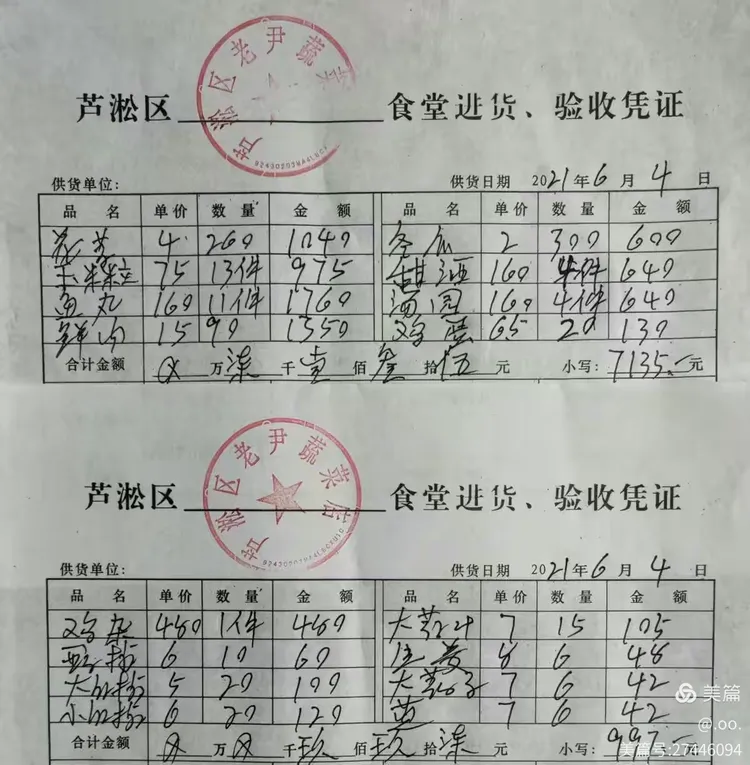 芦淞区老尹蔬菜
芦淞区 食堂进货、验收凭证
供货单位: 供货日期 2021年6月4日
品名 单价 数量 金额 品名 单价 数量 金额
花菜 4 260 1040 冬瓜 2 300 600
玉米粒 75 13件 975 甜酒 160 4件 640
鱼丸 160 11件 1760 汤圆 160 4件 640
鲜肉 15 90 1350 鸡蛋 6.5 20 130
合计金额 0万柒千壹佰叁拾伍元 小写:7135.-元
芦淞区老尹蔬菜店
芦淞区 食堂进货、验收凭证
供货单位: 供货日期 2021年6月4日
品名 单价 数量 金额 品名 单价 数量 金额
鸡杂 480 1件 480 7 15 105
6 10 60 8 6 48
5 20 100 大蒜子 7 6 42
6 20 120 7 6 42
合计金额 0万0千玖佰玖拾柒元 小写:997.-
美篇
@.oo.
美篇号:27446094